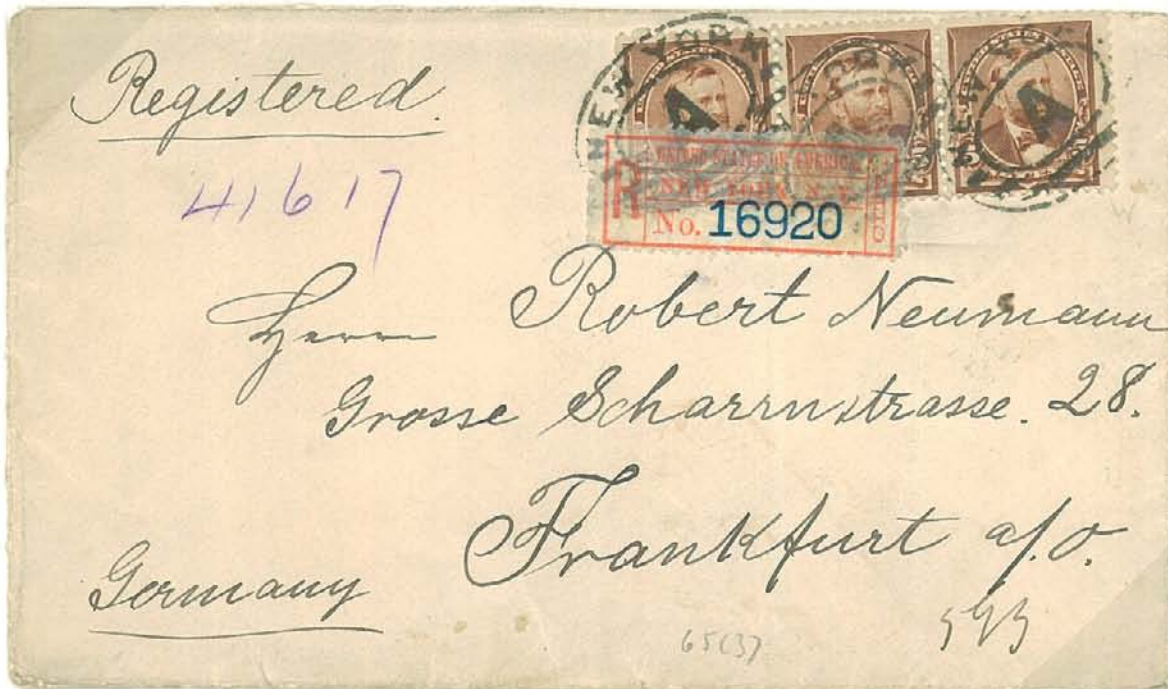 Registered.
NEW YORK
A
NEW YORK
NEW
A
R
UNITED STATES OF AMERICA
NEW YORK, N.Y.
No. 16920
41617
Herrn Robert Neumann
Grosse Scharrnstrasse. 28.
Frankfurt a/O.
Germany
65(3)